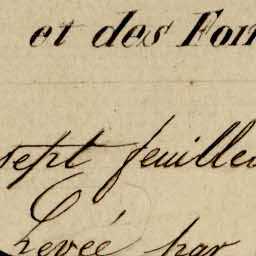 et des Fon
sept feuilles
Levée par